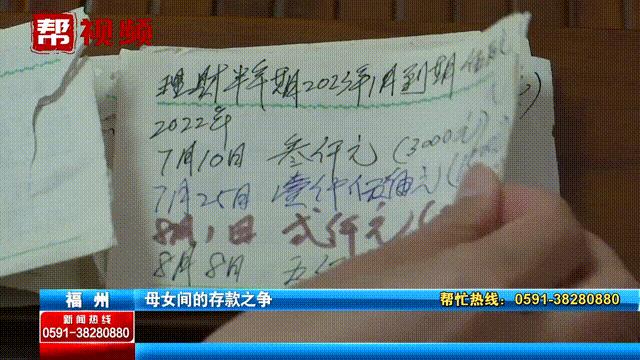 帮视频
理财半年期2023年1月到期
2022年
7月10日 叁仟元(3000元)
7月25日 壹仟伍佰元(
8月1日 弍仟元(
8月8日 五仟
福州 母女间的存款之争 帮忙热线：0591-38280880
新闻热线
0591-38280880